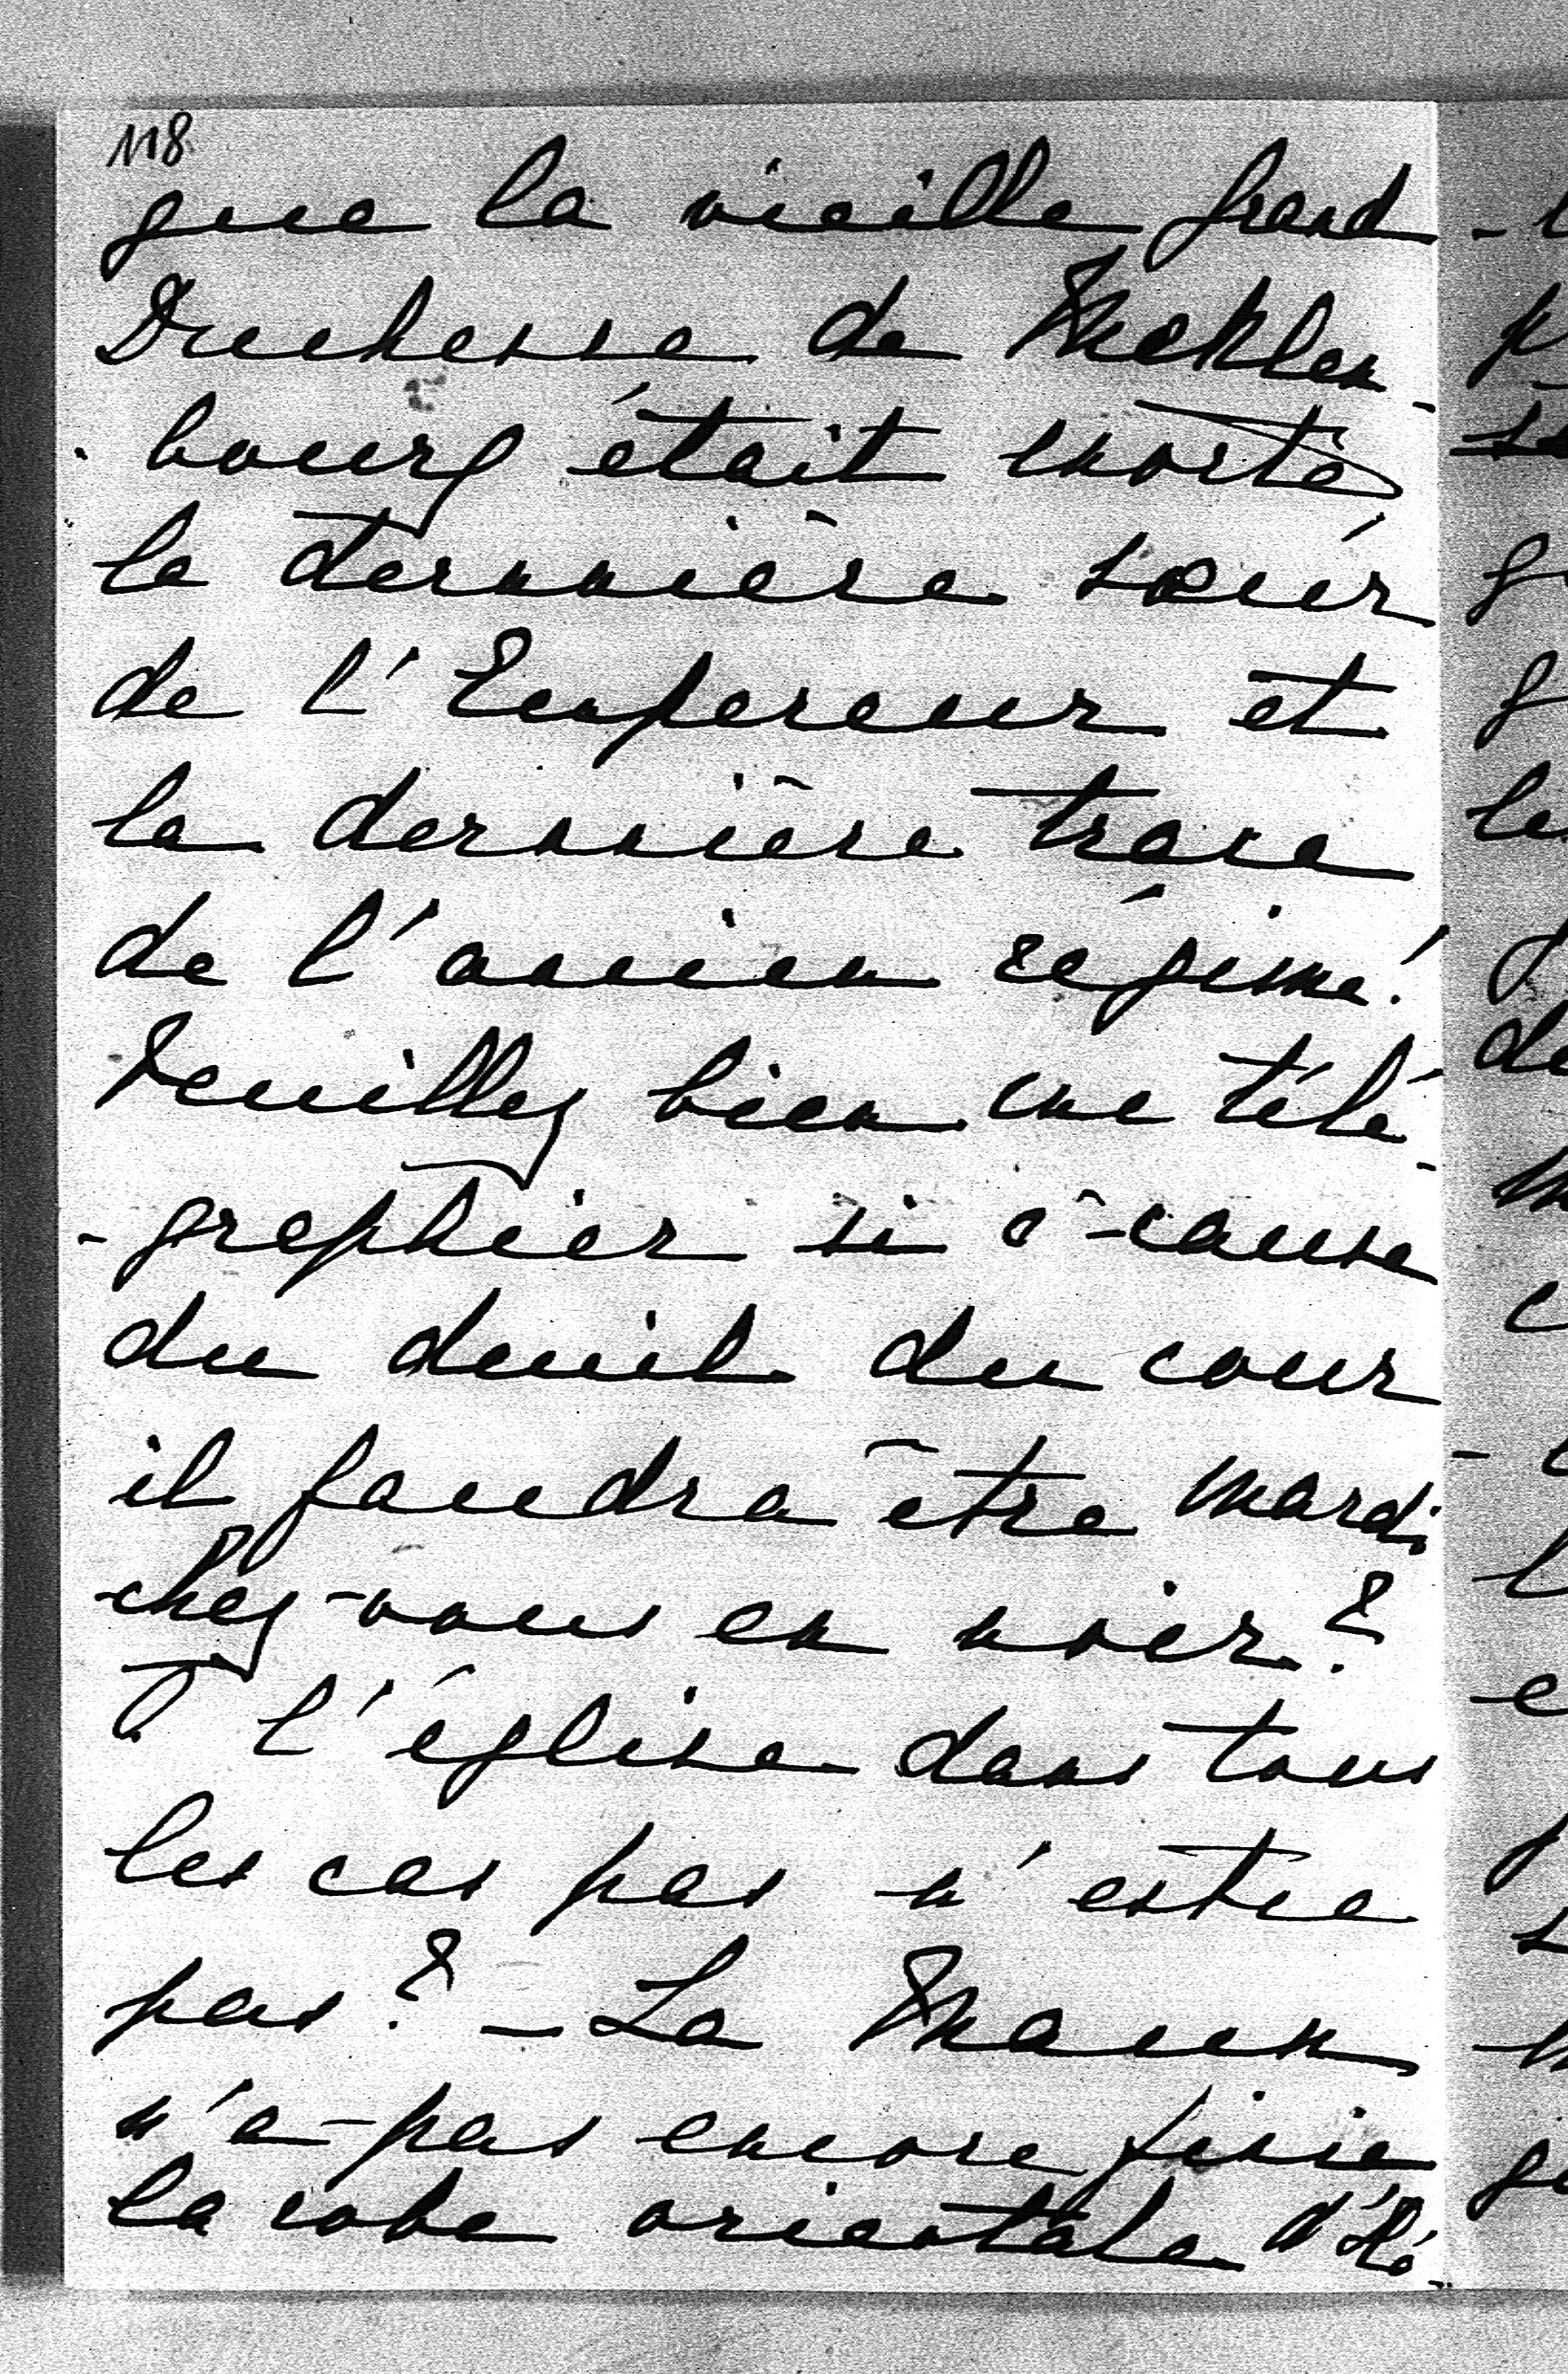 118
que la vieille grand
Duchesse de Meklen-
bourg était morte,
la dernière sœur
de l'Empereur et
la dernière trace
de l'ancien régime!
Veuillez bien me télé-
-graphier si à-cause
du deuil du cour
il faudra être mardi
chez-vous en noir?
à l'église dans tous
les cas pas n'estce
pas? – La Maun
n'a-pas encore finie
la robe orientale d'Hé-